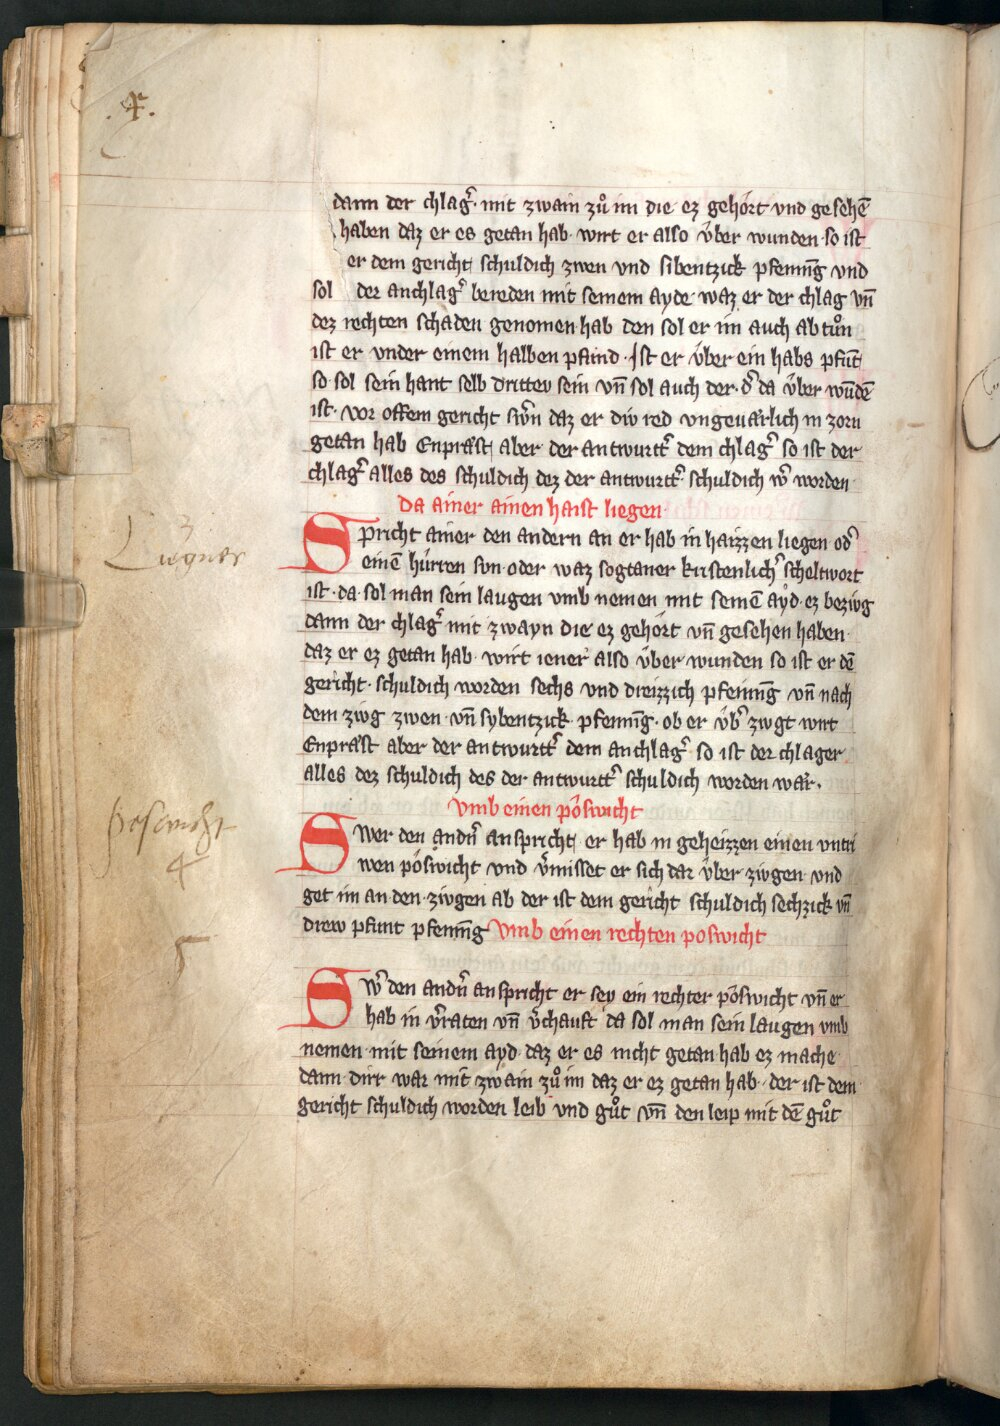 .4.
dann der chlag᷑ · mit zwain zuͦ im die ez gehoͤrt vnd gesehē
haben daz er es getan hab · wirt er also v̈ber wunden · so ist
er dem gericht schuldich zwen vnd sibentzick pfenni̅g vnd
sol der anchlag᷑ bereden mit seinem ayde waz er der chlag vn̅
dez rechten schaden genomen hab den sol er im auch ab tuͦn
ist er vnder einem halben pfund · Ist er v̈ber ein habs pfūt
so sol sein hant selb dritter sein vn̅ sol auch der · d᷑ da v̈ber wūdē
ist · vor offem gericht sw᷑n daz er diw red vngeuaͤrlich in zorn
getan hab Enpraͤst aber der antwurtt᷑ dem chlag᷑ so ist der
chlag᷑ alles des schuldich dez der antwurtt᷑ schuldich w᷑ worden
Da ainer ainen haist liegen
Lugner
Spricht ainer den andern an er hab in haizzen liegen od᷑
einē huͤrren sun oder waz sogtaner kristenlich᷑ scheltwort
ist · da sol man sein laugen vmb nemen mit seinē ayd · ez bezivg
dann der chlag᷑ mit zwayn die ez gehoͤrt vn̅ gesehen haben
daz er ez getan hab · wirt iener also v̈ber wunden so ist er dē
gericht · schuldich worden sechs vnd dreizzich pfenni̅g vn̅ nach
dem zivg zwen vn̅ sybentzick pfenni̅g · ob er v̈b᷑ zivgt wirt
Enpraͤst aber der antwurtt᷑ dem anchlag᷑ so ist der chlager
alles dez schuldich des der antwurtt᷑ schuldich worden waͤr ·
vmb einen poͤswicht
poswicht
4
Swer den and᷑n anspricht er hab in geheizzen einen vntri
wen poͤswicht vnd v᷑misset er sich dar v̈ber zivgen vnd
get im an den zivgen ab der ist dem gericht schuldich sechzick vn̅
drew pfunt pfenni̅g vmb einen rechten poswicht
5
Sw᷑ den and᷑n anspricht er sey ein rechter poͤswicht vn̅ er
hab in v᷑raten vn̅ v᷑chauft da sol man sein laugen vmb
nemen mit seinem ayd daz er es nicht getan hab ez mache
dann dirr war mit zwain zuͦ im daz er ez getan hab · der ist dem
gericht schuldich worden leib vnd guͦt vn̅ den leip mit dē guͦt